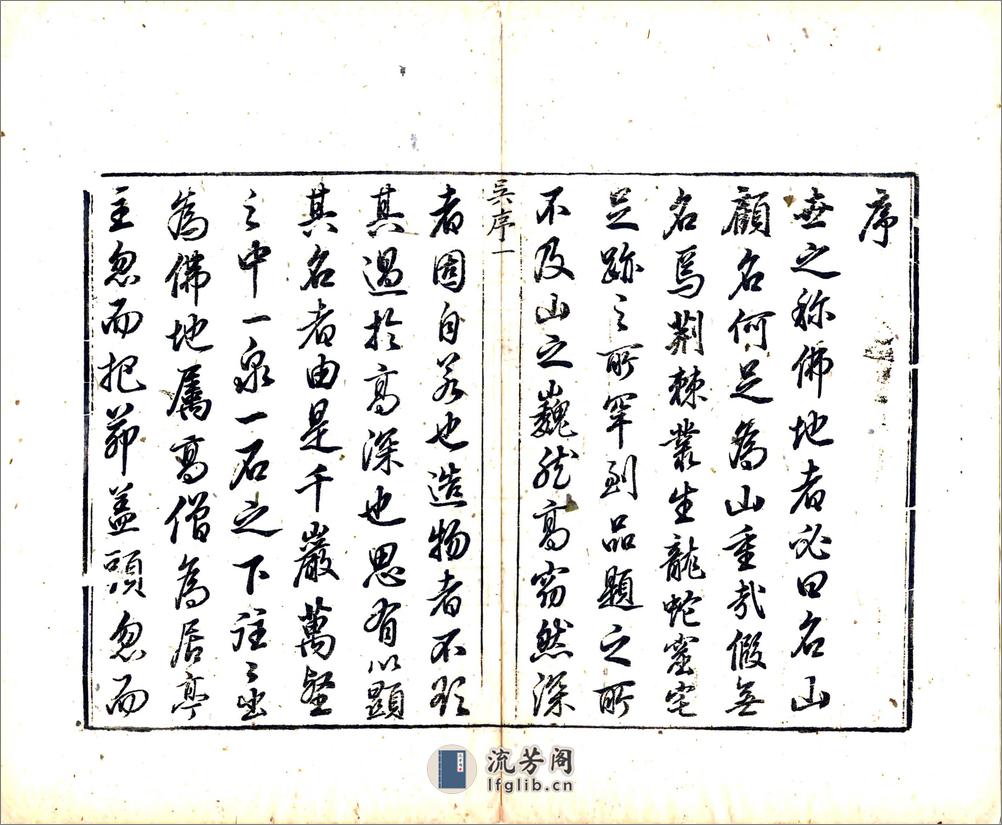 序
世之称佛地者必曰名山
顧名何足為山重哉假無
名焉荆棘叢生龍蛇窟宅
足跡之所罕到品題之所
不及山之巍然高窈然深
吴序一
者固自若也造物者不欲
其過於高深也思有以顯
其名者由是千巖萬壑
之中一泉一石之下往之出
為佛地属高僧為居亭
主忽而把茆盖頭忽而
流芳阁
lfglib.cn